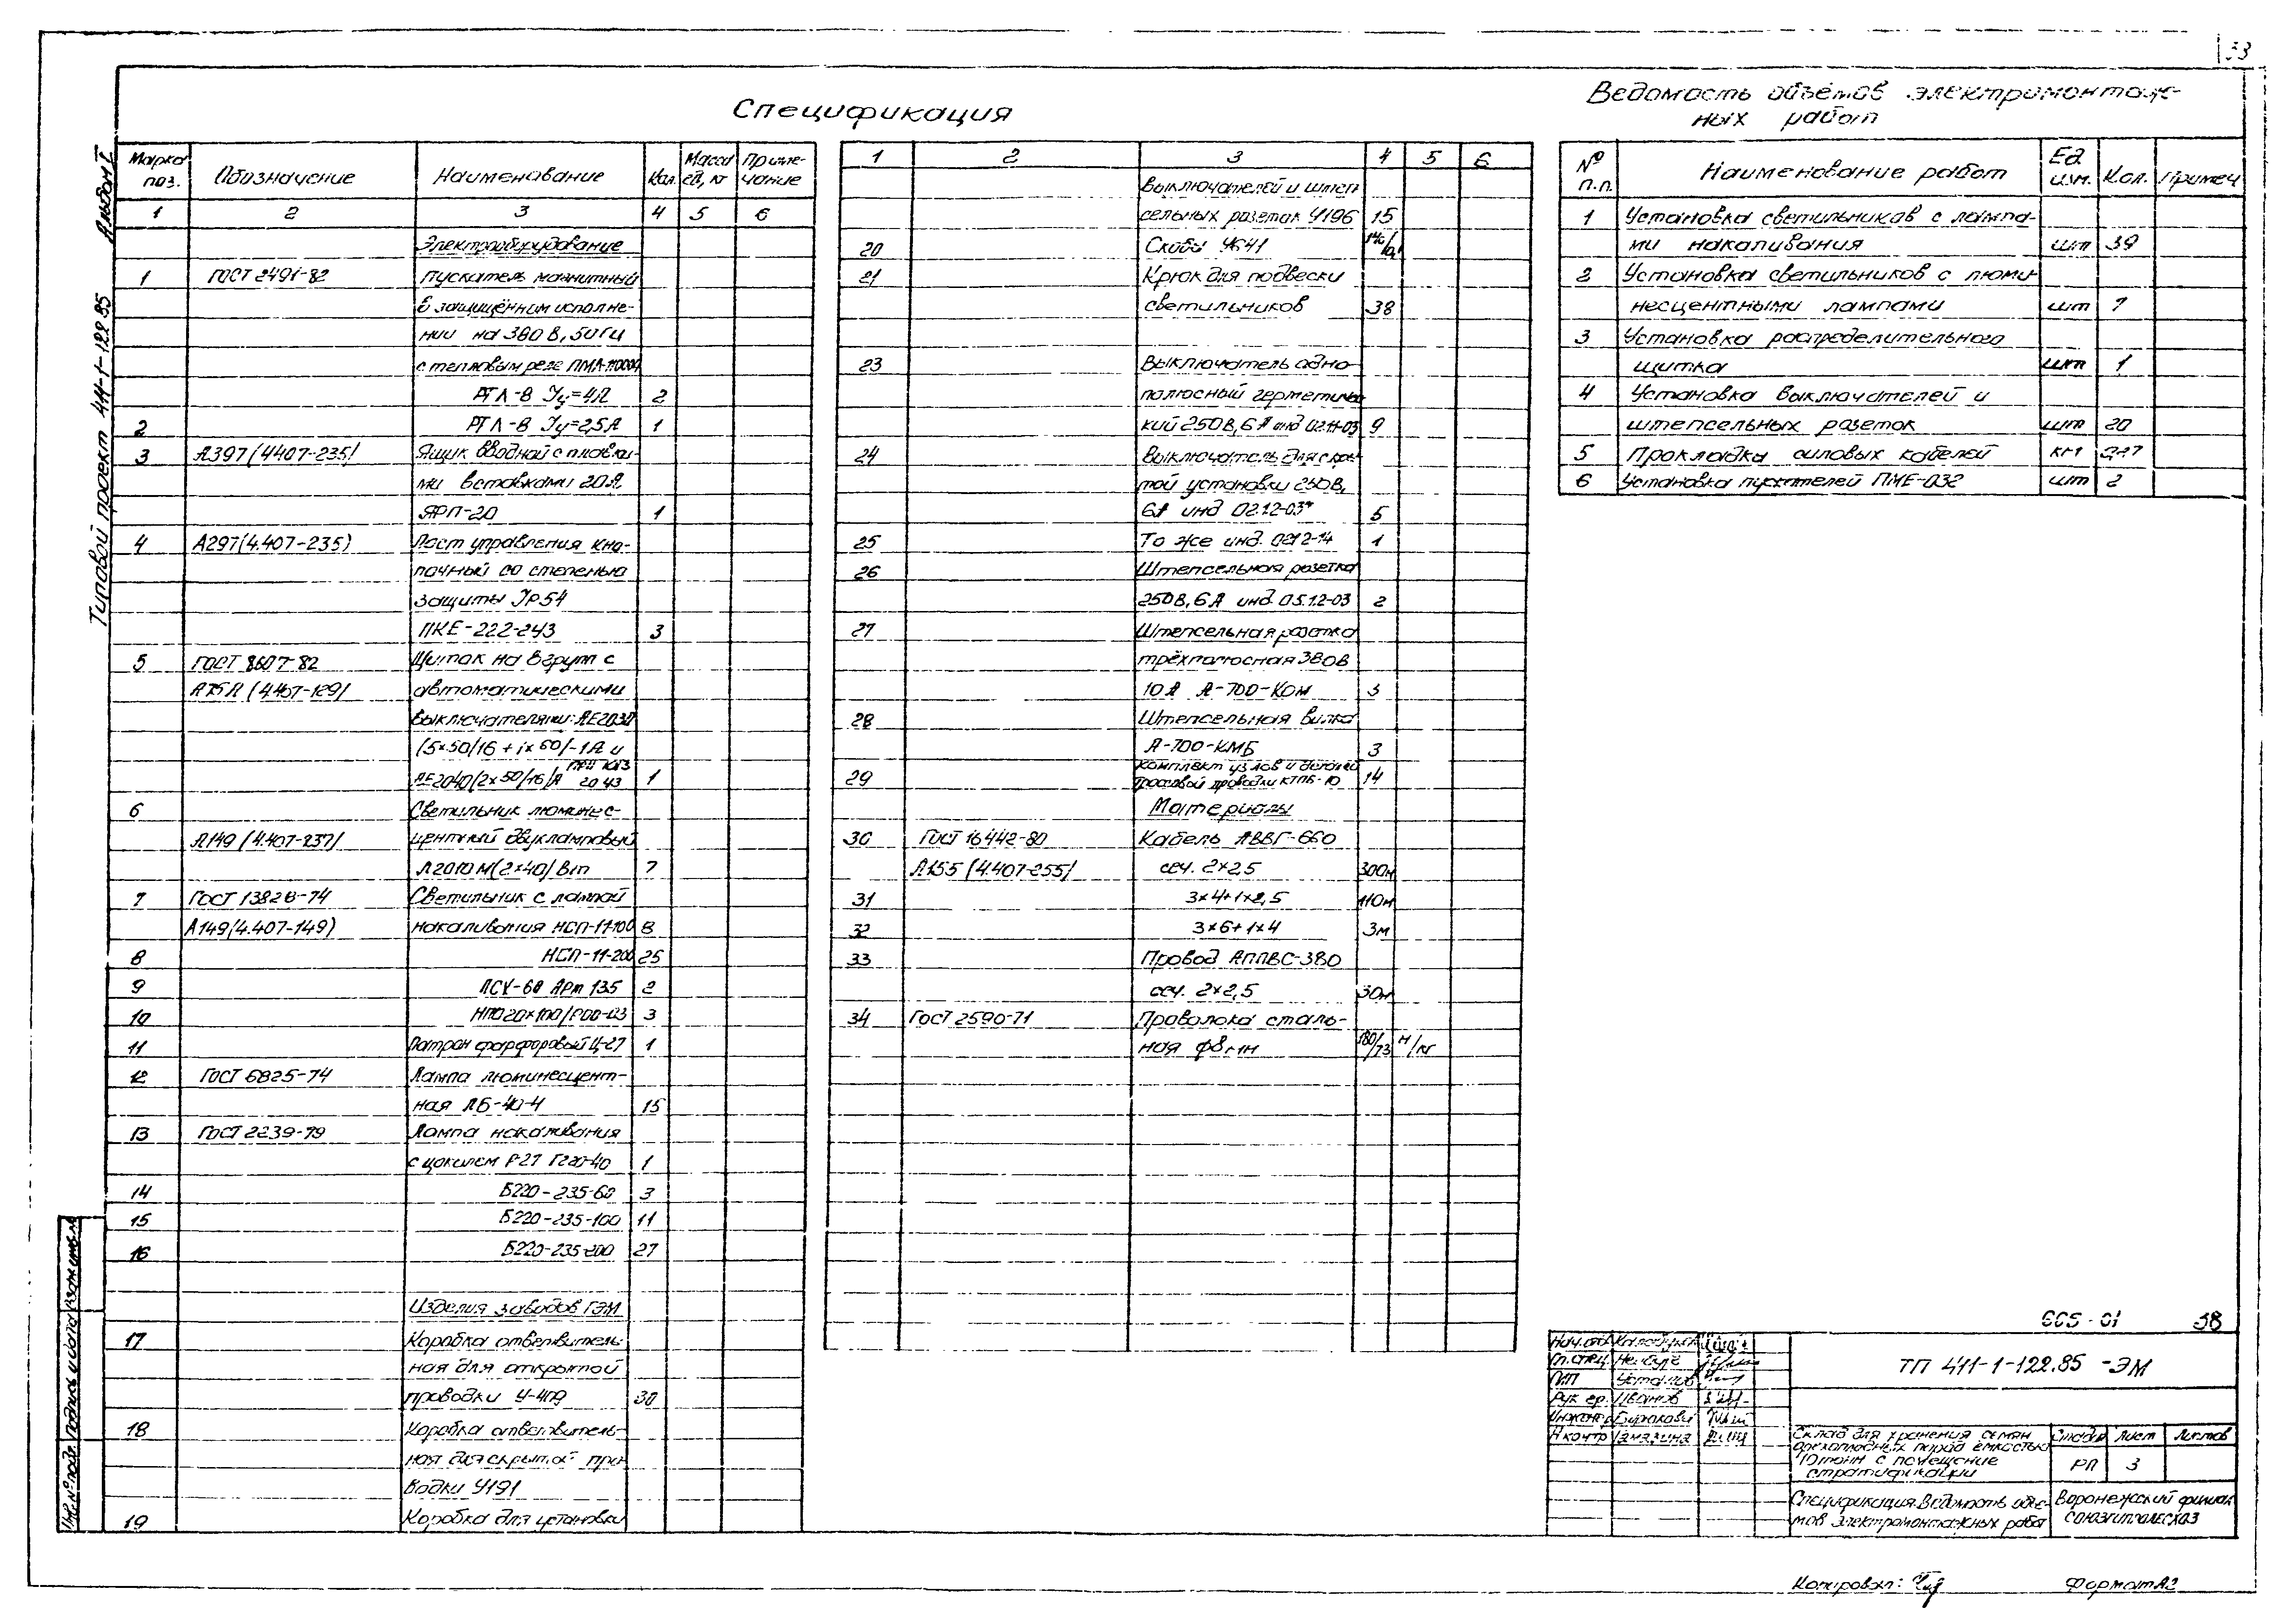 33
Спецификация
Ведомость объёмов электромонтаж-
ных работ
Типовой проект 411-1-122.85 Альбом I
Марка поз. Обозначение Наименование Кол. Масса ед, кг Приме-чание
1 2 3 4 5 6
Электрооборудование
1 ГОСТ 2491-82 Пускатель магнитный
в защищённом исполне-
нии на 380 В, 50 Гц
с тепловым реле
РТЛ-8 Iу=4А 2
2 РТЛ-8 Iу=2,5А 1
3 А397(4.407-235) Ящик вводной с плавки-
ми вставками 20А
ЯРП-20 1
4 А297(4.407-235) Пост управления кно-
почный со степенью
защиты JP54
ПКЕ-222-243 3
5 ГОСТ 8607-82 Щиток на 8 групп с
А75А (4.407-129) автоматическими
выключателями: АЕ2030
(5×50/16 + 1×50/-1А и
АЕ2040/2×50/16/А 1
6 Светильник люминес-
А149 (4.407-237) центный двухламповый
Л2010М(2×40) Вт 7
7 ГОСТ 13828-74 Светильник с лампой
А149(4.407-149) накаливания НСП-11-100 8
8 НСП-11-200 25
9 ПСХ-60 Арт 135 2
10 НПО20×100/Р00-03 3
11 Патрон фарфоровый Ц-27 1
12 ГОСТ 6825-74 Лампа люминесцент-
ная ЛБ-40-4 15
13 ГОСТ 2239-79 Лампа накаливания
с цоколем Р-27 Г220-40 1
14 Б220-235-60 3
15 Б220-235-100 11
16 Б220-235-200 27
Изделия заводов ГЭМ
17 Коробка ответвитель-
ная для открытой
проводки У-409 30
18 Коробка ответвитель-
ная для скрытой про-
водки У191
19 Коробка для установки
1 2 3 4 5 6
выключателей и штеп
сельных розеток У196 15
20 Скобы У641
21 Крюк для подвески
светильников 38
23 Выключатель одно-
полюсный герметичес
кий 250В, 6А инд 02.11-03 9
24 Выключатель для скры
той установки 250В,
6А инд 02.12-03 5
25 То же инд. 0212-14 1
26 Штепсельная розетка
250В, 6А инд. 05.12-03 2
27 Штепсельная розетка
трёхполюсная 380В
10А А-700-Ком 3
28 Штепсельная вилка
А-700-КМБ 3
29 Комплект узлов и деталей
тросовой проводки КТПБ-10 14
Материалы
30 ГОСТ 16442-80 Кабель АВВГ-660
А155 (4.407-255) сеч. 2×2,5 300м
31 3×4+1×2,5 110м
32 3×6+1×4 3м
33 Провод АППВС-380
сеч. 2×2,5 30м
34 ГОСТ 2590-71 Проволока сталь-
ная ф8мм 180/73 м/кг
№ п.п. Наименование работ Ед изм. Кол. Примеч
1 Установка светильников с лампа-
ми накаливания шт 39
2 Установка светильников с люми-
несцентными лампами шт 7
3 Установка распределительного
щитка шт 1
4 Установка выключателей и
штепсельных розеток шт 20
5 Прокладка силовых кабелей км
6 Установка пускателей ПМЕ-032 шт 2
665-01 38
Нач.отд
Гл.спец.
ГИП
Рук гр. Иванов
Инженер
Н контр
ТП 411-1-122.85 -ЭМ
Склад для хранения семян
орехоплодных пород емкостью
10 тонн с помещение
стратификации
Стадия Лист Листов
РП 3
Спецификация. Ведомость объё-
мов электромонтажных работ
Воронежский филиал
Союзгипролесхоз
Инв. № подл. Подпись и дата Взам.инв.№
Копировал:
Формат А2